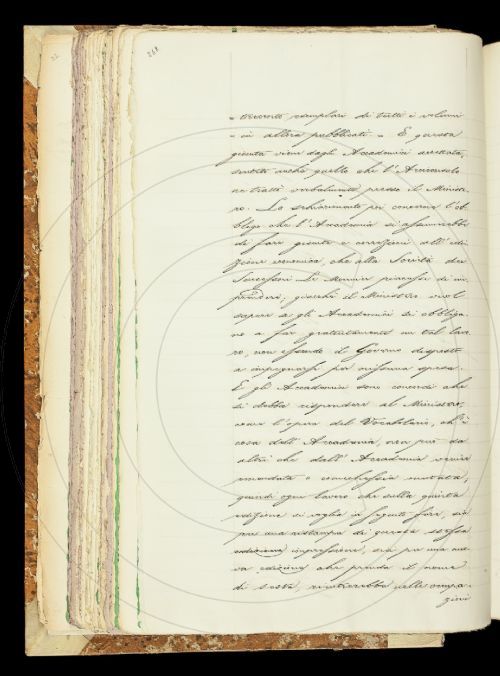 268
„ trecento esemplari di tutti i volumi
„ in allora pubblicati „. E questa
giunta viene dagli Accademici accettata,
sentito anche quello che l'Arciconsolo
ne trattò verbalmente presso il Ministe-
ro. Lo schiarimento poi concerne l'ob-
bligo che l'Accademia si assumerebbe
di fare giunte e correzioni all'edi-
zione economica che alla Società dei
Successori Le Monnier piacesse di im-
prendere; giacchè il Ministero vuol
sapere se gli Accademici si obbliga-
no a far gratuitamente un tal lavo-
ro, non essendo il Governo disposto
a impegnarsi per nissuna spesa.
E gli Accademici sono concordi che
si debba rispondere al Ministero,
esser l'opera del Vocabolario, ch'è
cosa dell'Accademia, non può da
altri che dall'Accademia venire
emendata o comechessia mutata;
quindi ogni lavoro che sulla quinta
edizione si voglia in seguito fare, sia
per una ristampa di questa stessa
edizione impressione, sia per una nuo-
va edizione che prenda il nome
di sesta, rientrerebbe nelle compe-
zioni